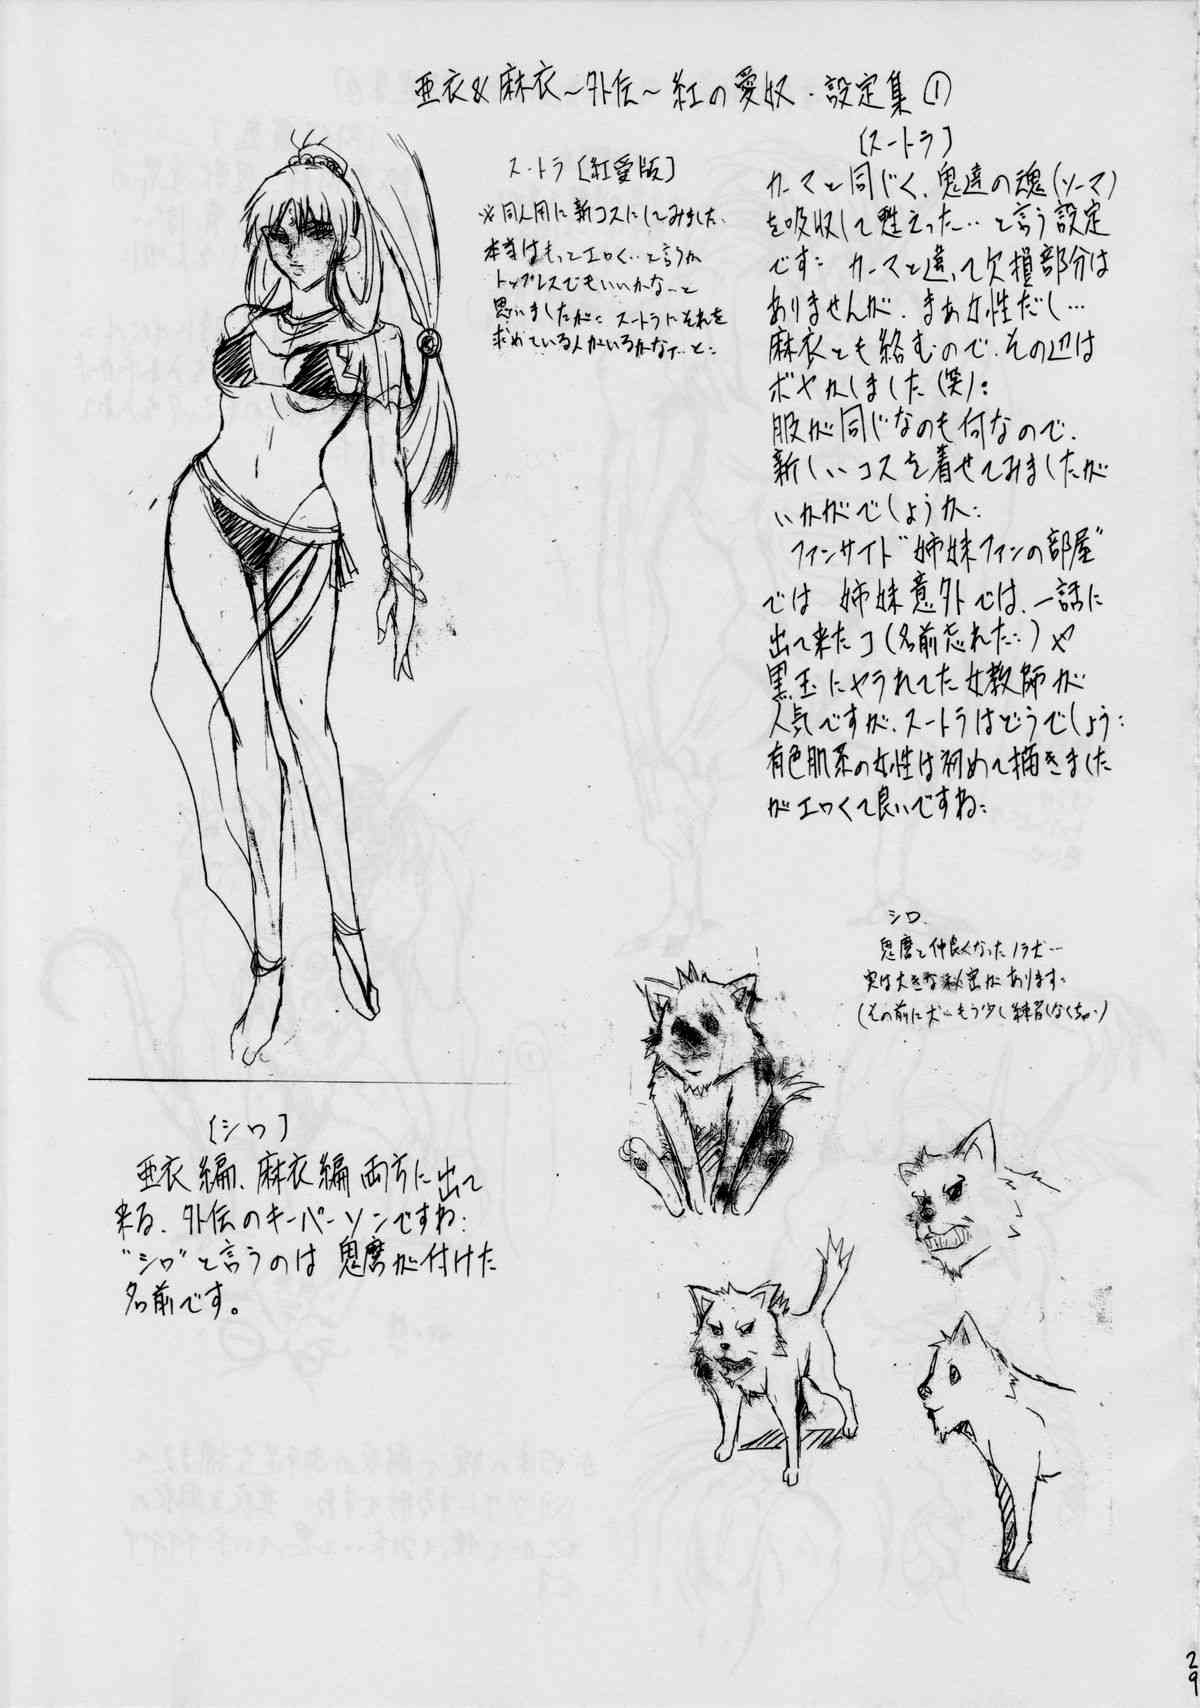 亜衣&麻衣～外伝～紅の愛奴・設定集①
スートラ〔紅愛版〕
※同人用に新コスにしてみました、
本当はもっとエロく…と言うか
トップレスでもいいかなーと
思いましたが… スートラにそれを
求めている人がいるかなァ…と…
〔スートラ〕
カーマと同じく、鬼達の魂(ソーマ)
を吸収して甦えった…と言う設定
です… カーマと違って欠損部分は
ありませんが、まぁ女性だし…
麻衣とも絡むので、その辺は
ボヤかしました(笑)…
服が同じなのも何なので、
新しいコスを着せてみましたが
いかがでしょうか…
ファンサイト"姉妹ファンの部屋"
では 姉妹意外では、一話に
出て来たコ(名前忘れた…)や
黒玉にヤラれてた女教師が
人気ですが、スートラはどうでしょう…
有色肌系の女性は初めて描きました
がエロくて良いですね…
シロ
鬼麿と仲良くなったノラ犬…
実は大きな秘密があります…
(その前に犬…もう少し練習しなくちゃ…)
〔シロ〕
亜衣編、麻衣編両方に出て
来る、外伝のキーパーソンですね…
"シロ"と言うのは鬼麿が付けた
名前です。
29